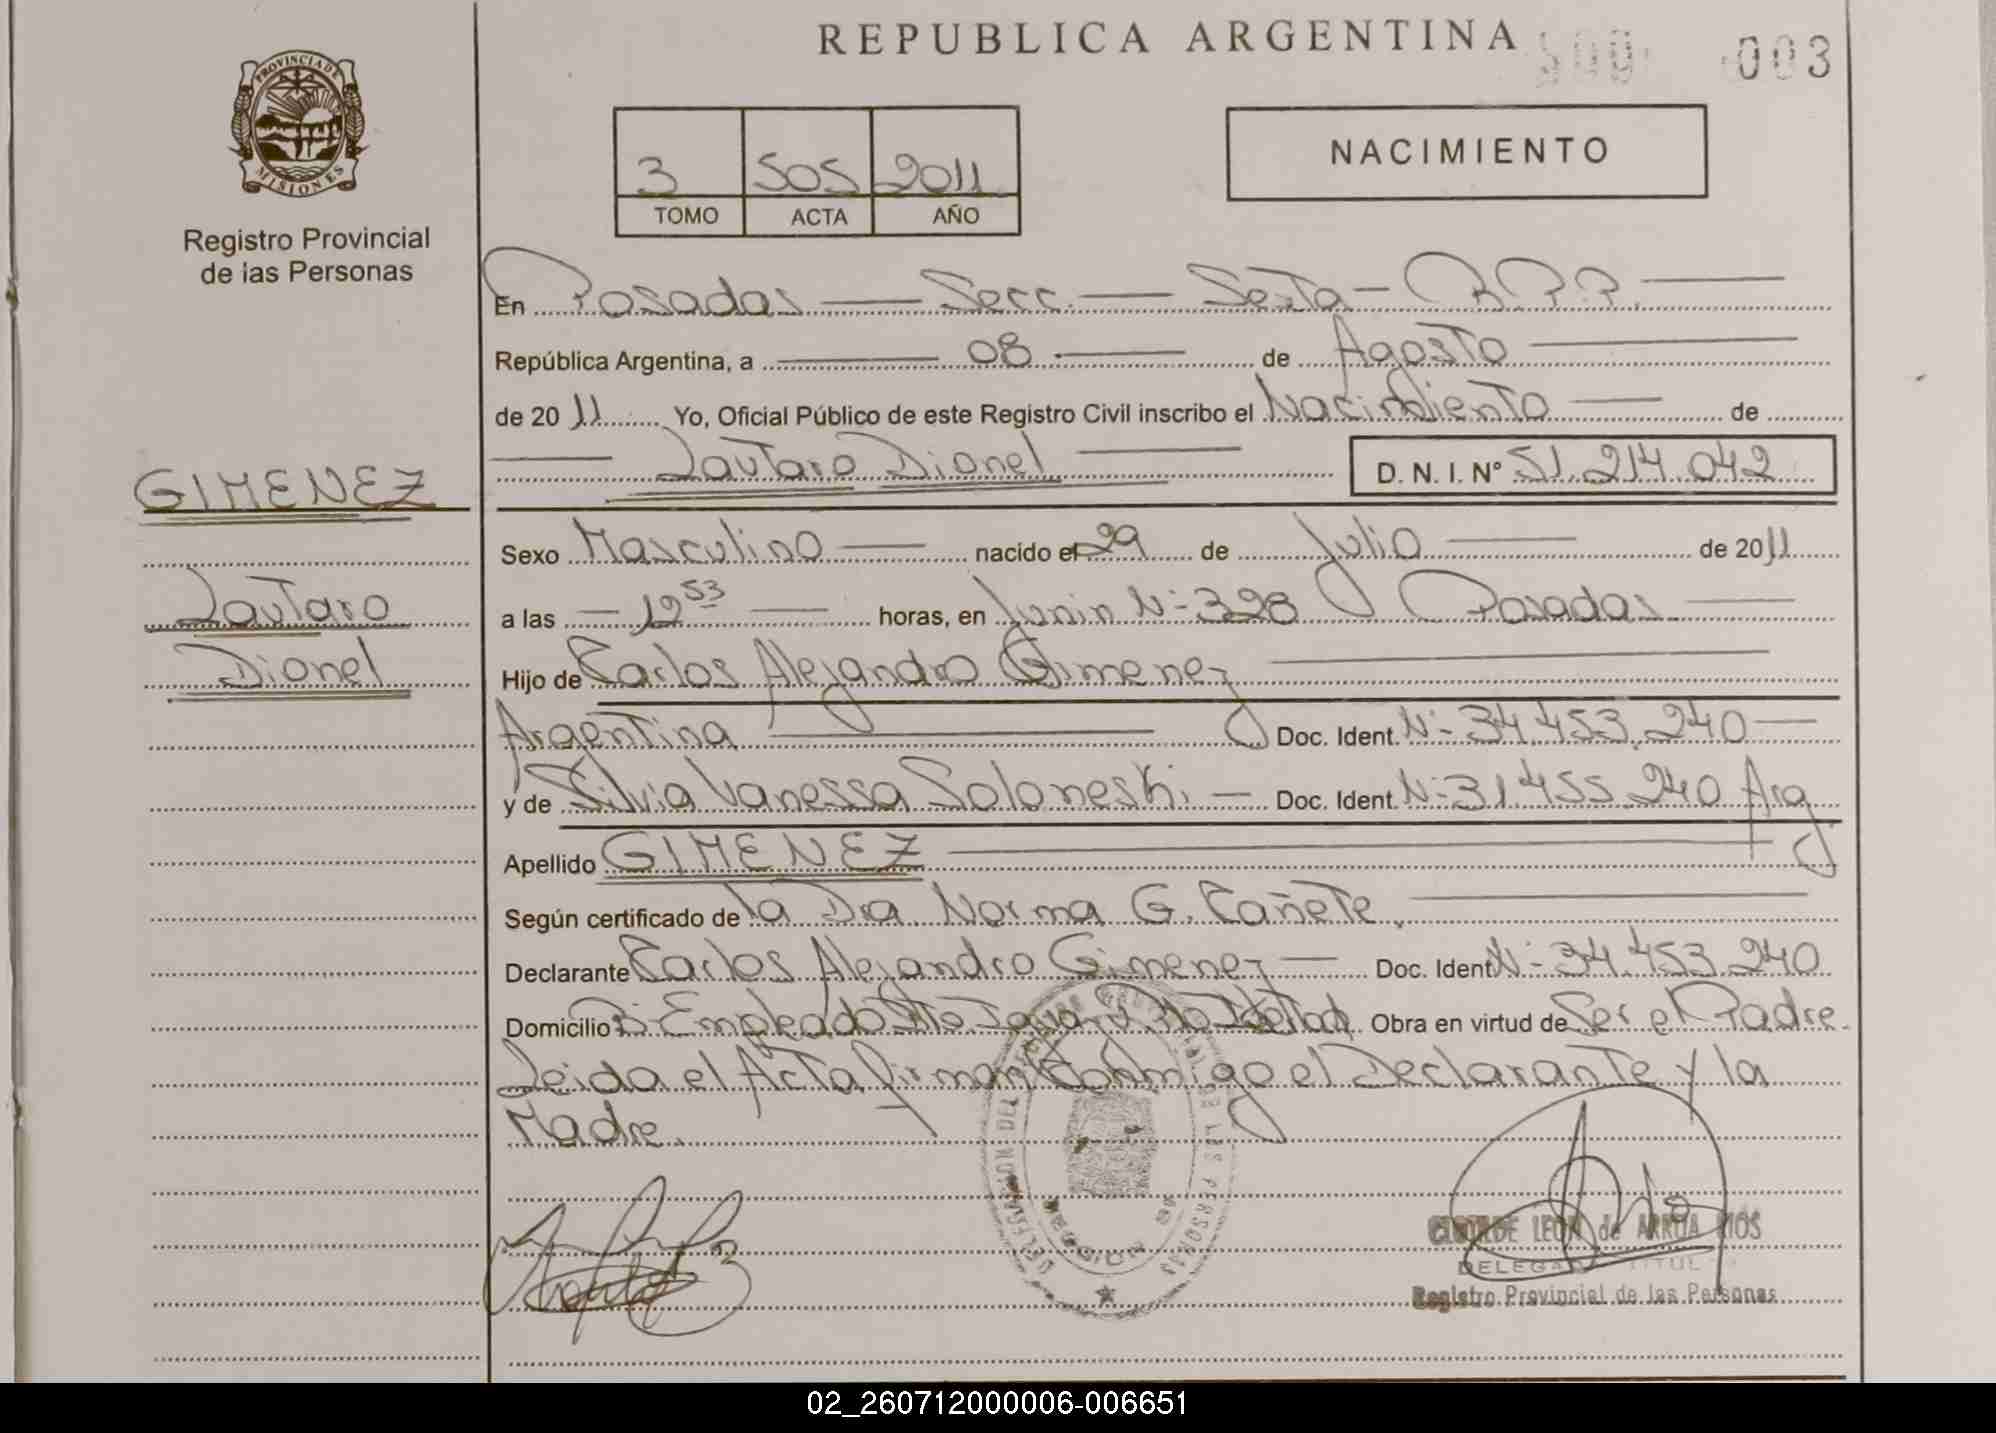 REPUBLICA ARGENTINA
003
PROVINCIA DE
MISIONES
Registro Provincial
de las Personas
3 505 2011
TOMO ACTA AÑO
NACIMIENTO
En Posadas - Secc. - Sexta - R.P.P.
República Argentina, a 08 de Agosto
de 2011 Yo, Oficial Público de este Registro Civil inscribo el Nacimiento de
Lautaro Dionel D. N. I. N° 51.214.042
GIMENEZ
Sexo Masculino nacido el 29 de Julio de 2011
Lautaro
a las 12 53 horas, en Junin N° 328 Posadas
Dionel
Hijo de Carlos Alejandro Gimenez
Argentina Doc. Ident. N° 34.453.240
y de Silvia Vanessa Soloneski Doc. Ident. N° 31.455.240 Arg
Apellido GIMENEZ
Según certificado de la Dra Norma G. Cañete
Declarante Carlos Alejandro Gimenez Doc. Ident N° 34.453.240
Domicilio Empleado Obra en virtud de Ser el Padre.
Leida el Acta firman Conmigo el Declarante y la
Madre.
CLOTILDE LEON de ARRUA RIOS
Registro Provincial de las Personas
02_260712000006-006651